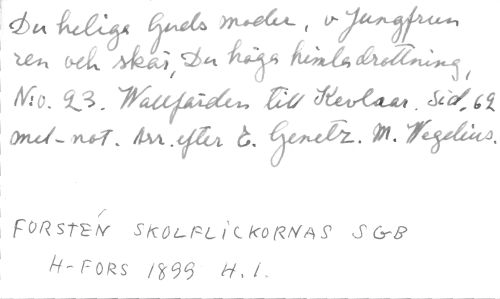 Du heliga Guds moder, o Jungfrun
ren och skär, Du höga himladrottning,
N:o. 23. Wallfarden till Kevlaar. Sid. 62
mel-not. Arr. efter E. Genetz. M. Wegelius.
FORSTÉN SKOLFLICKORNAS SGB
H-FORS 1899 H.1.